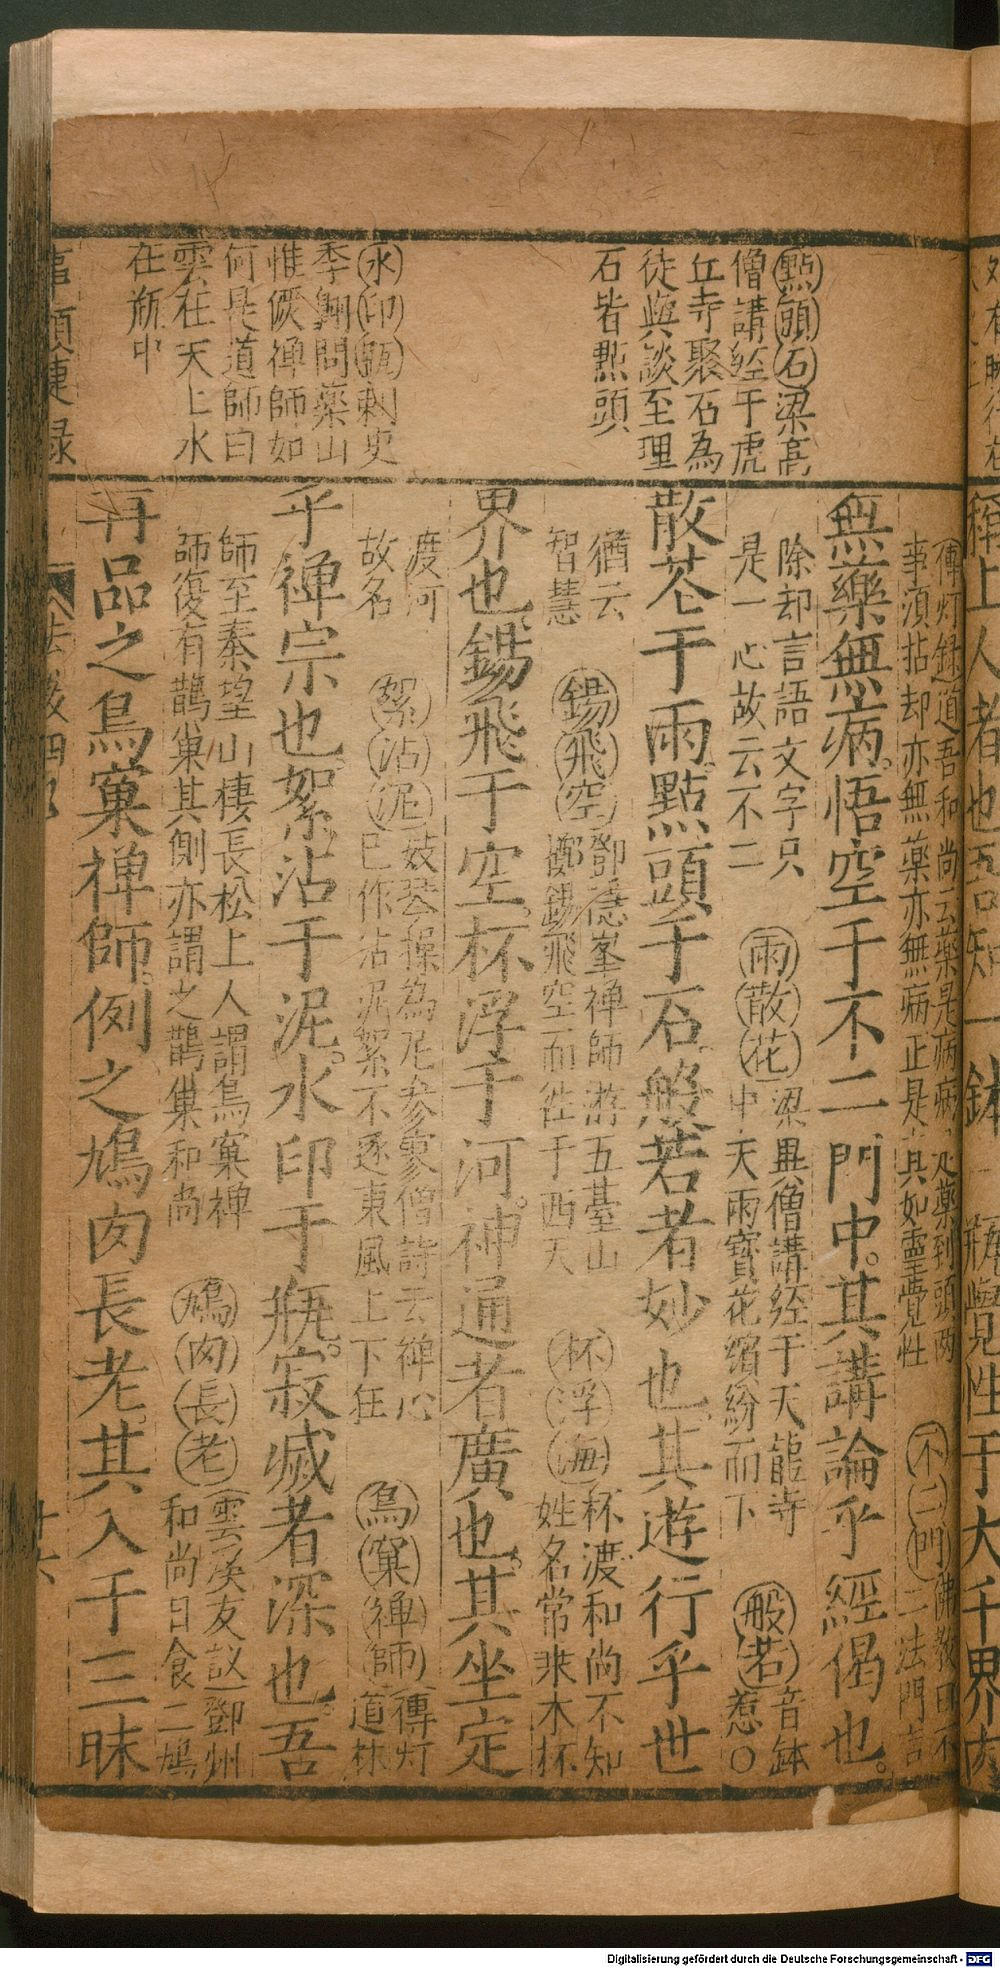 㸃頭石梁高
僧講經于虎
丘寺聚石為
徒與談至理
石皆㸃頭
水印瓶刺史
李翺問藥山
惟儼禅師如
何是道師曰
雲在天上水
在瓶中
傳灯錄道吾和尚云藥是病病是藥到頭两
事須拈却亦無藥亦無病正是真如靈覺性
不二門佛教曰不
二法門言
無藥無病。悟空于不二門中。其講論乎經偈也。
除却言語文字只
是一心故云不二
雨散花梁異僧講经于天龍寺
中天雨寳花繽紛而下
般若音鉢
惹〇
散花于雨。㸃頭于石。般若者妙也。其遊行乎世
猶云
智慧
錫飛空鄧隱峯禅師游五臺山
擲錫飛空而徃于西天
杯浮海杯渡和尚不知
姓名常乗木杯
界也。錫飛于空。杯浮于河。神通者廣也。其坐定
渡河
故名
絮沾泥妓琴操為尼参寥僧詩云禅心
已作沾泥絮不逐東風上下狂
鳥窠禅師傳灯
道林
乎禅宗也。絮沾于泥。水印于瓶。寂滅者深也。吾
師至秦望山棲長松上人謂鳥窠禅
師復有鵲巢其側亦謂之鵲巢和尚
鳩肉長老雲溪友議鄧州
和尚日食二鳩
再品之鳥窠禅師。例之鳩肉長老。其入于三昧
廿六
Digitalisierung gefördert durch die Deutsche Forschungsgemeinschaft - DFG